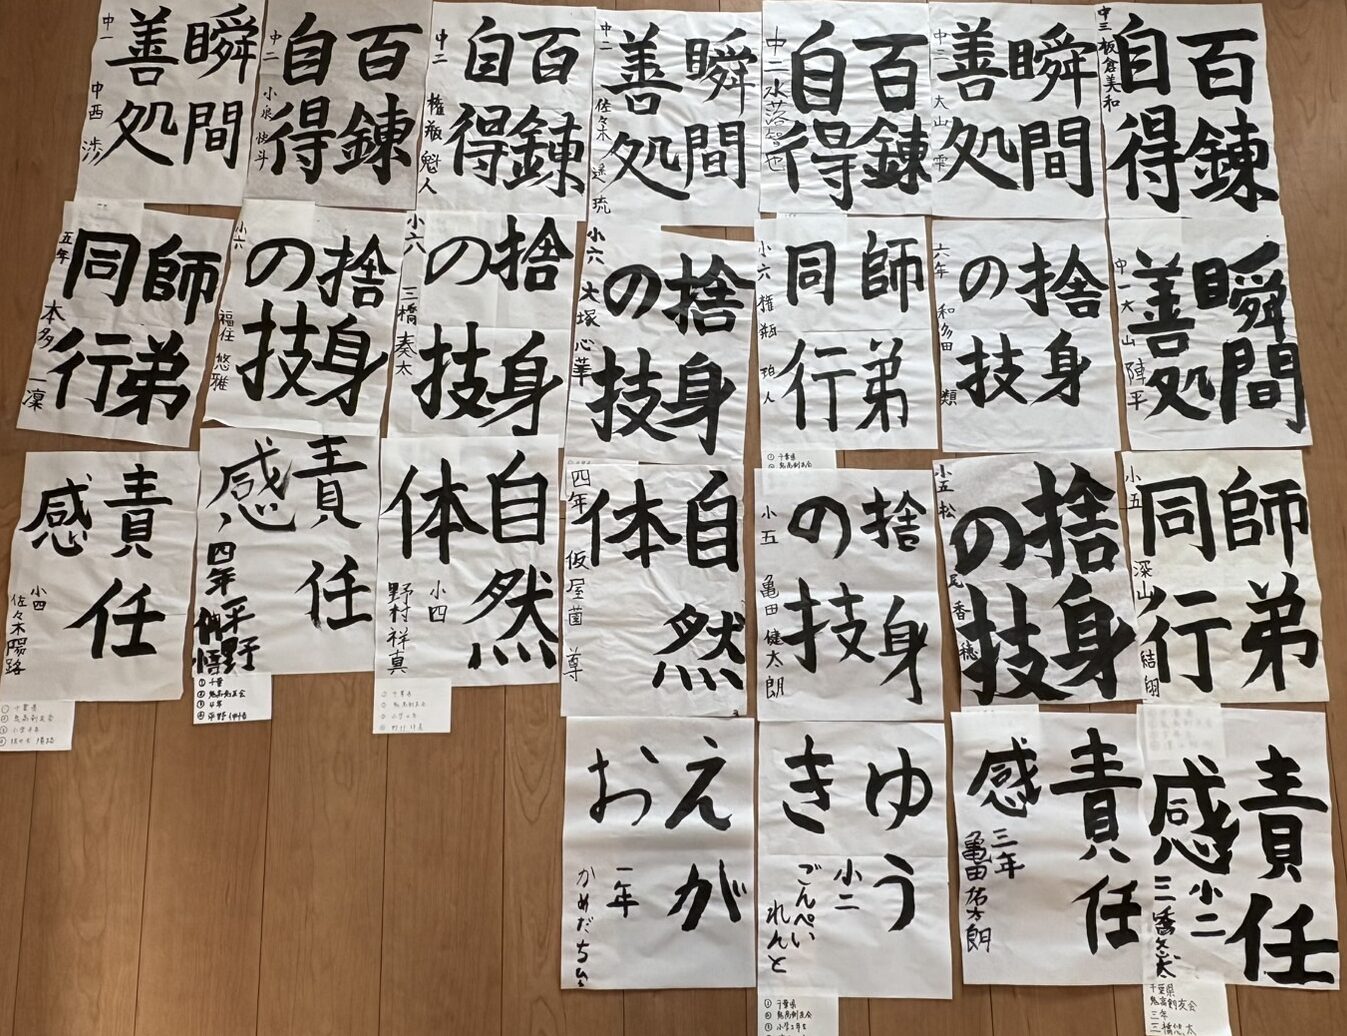 百錬
自得
中三 板倉美和
瞬間
善処
中三 大山 雫
百錬
自得
中二 水落智也
瞬間
善処
中二 佐々木 逐琉
百錬
自得
中二 権瓶 魁人
百錬
自得
中二 小泉 快斗
瞬間
善処
中一 中西 渉
瞬間
善処
中一 大山 陣平
捨身
の技
六年 和多田 類
師弟
同行
小六 権瓶 珀人
捨身
の技
小六 大塚 心華
捨身
の技
小六 三橋 奏太
捨身
の技
小六 福住 悠雅
師弟
同行
五年 本多 凜
師弟
同行
小五 深山 結翔
捨身
の技
小五 松尾 香穂
捨身
の技
小五 亀田 健太朗
自然
体
四年 仮屋薗 尊
自然
体
小四 野村 祥真
責任
感
四年 平野
①千葉
②鬼高剣友会
③4年
責任
感
小四 佐々木陽路
①千葉県
②鬼高剣友会
③小学4年
責任
感
小二 三橋
千葉県
鬼高剣友会
三年
三橋悠太
責任
感
三年 亀田佑太朗
ゆう
き
小二 ごんぺい れんと
①千葉県
②鬼高剣友会
えが
お
一年 かめだ